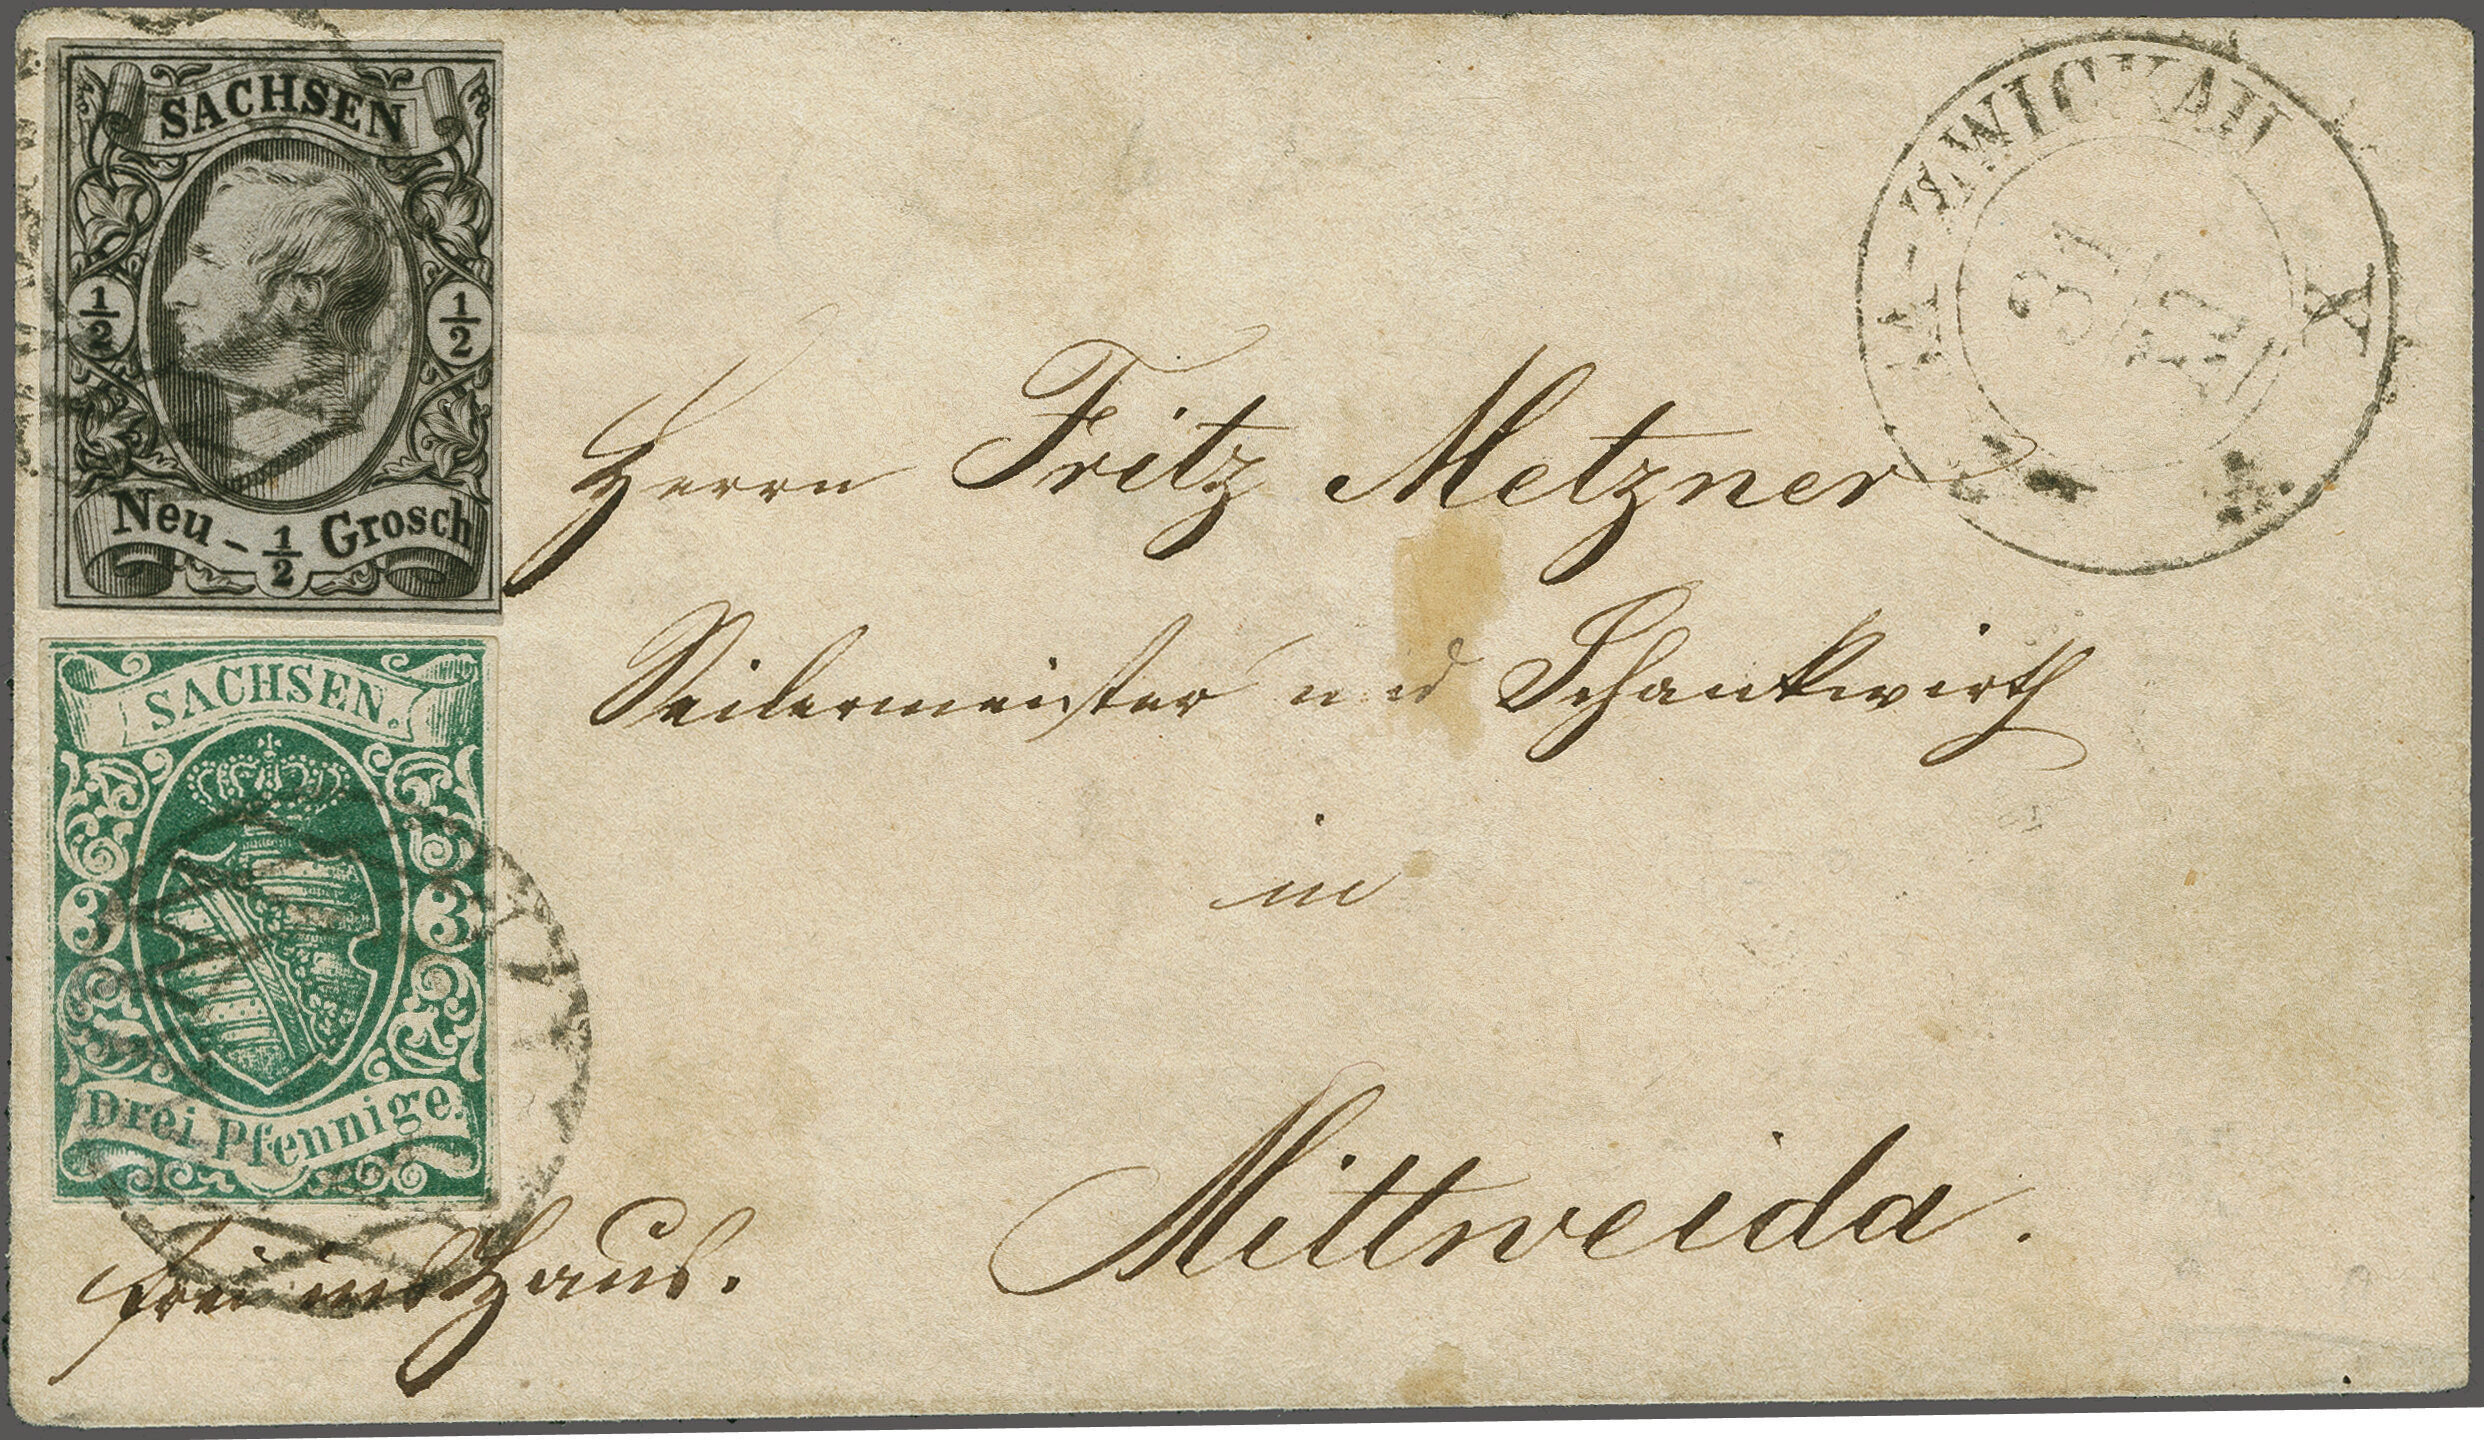 SACHSEN
1/2 1/2
Neu - 1/2 Grosch
SACHSEN.
3 3
Drei Pfennige.
ZWICKAU
31
X
Herrn Fritz Metzner
Seilermeister und Schankwirth
in
Mittweida.
frei ins Haus.